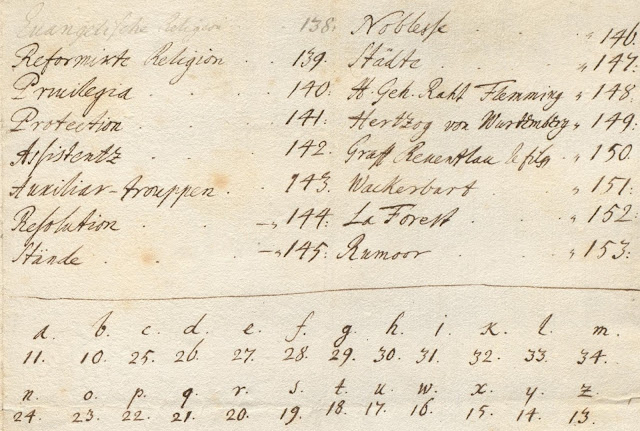 Evangelische Religion . 138. Noblesse . . . „ 146.
Reformirte Religion . . 139. Städte . . . „ 147.
Privilegia . . . 140. H. Geh. Raht Flemming „ 148.
Protection . . . 141. Hertzog von Wurtemberg „ 149.
Assistentz . . . 142. Graff Reventlau . „ 150.
Auxiliar-trouppen . . 143. Wackerbart . . „ 151.
Resolution . . – „ 144. La Forest . . „ 152.
Stände . . – „ 145. Rumoor . . „ 153.
a. b. c. d. e. f. g. h. i. k. l. m.
11. 10. 25. 26. 27. 28. 29. 30. 31. 32. 33. 34.
n. o. p. q. r. s. t. u. w. x. y. z.
24. 23. 22. 21. 20. 19. 18. 17. 16. 15. 14. 13.